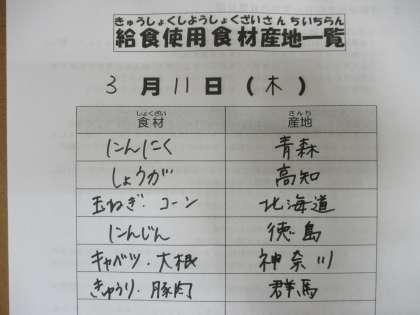 きゅうしょくしようしょくざいさんちいちらん
給食使用食材産地一覧
3月11日(木)
しょくざい さんち
食材 産地
にんにく 青森
しょうが 高知
玉ねぎ・コーン 北海道
にんじん 徳島
キャベツ・大根 神奈川
きゅうり・豚肉 群馬